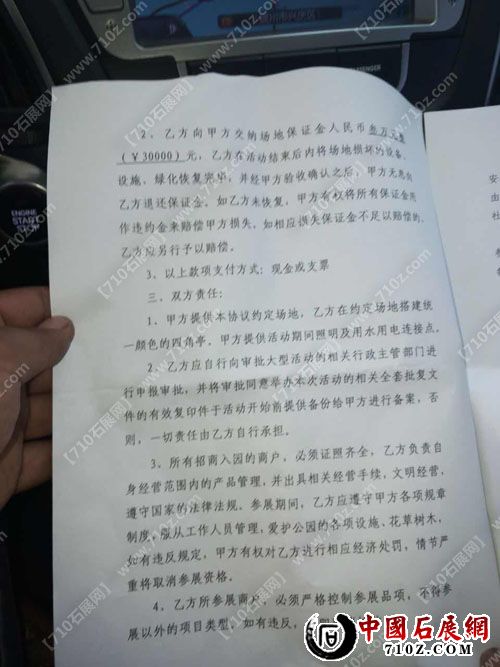 2、乙方向甲方交纳场地保证金人民币叁万元整
(￥30000)元，乙方在活动结束后内将场地损坏的设备、
设施，绿化恢复完毕，并经甲方验收确认之后，甲方无息向
乙方退还保证金。如乙方未恢复，甲方有权将所有保证金用
作违约金来赔偿甲方损失，如相应损失保证金不足以赔偿的，
乙方应另行予以赔偿。
3、以上款项支付方式：现金或支票
三、双方责任：
1、甲方提供本协议约定场地，乙方在约定场地搭建统
一颜色的四角亭。甲方提供活动期间照明及用水用电连接点。
2、乙方应自行向审批大型活动的相关行政主管部门进
行申报审批，并将审批同意举办本次活动的相关全套批复文
件的有效复印件于活动开始前提供备份给甲方进行备案，否
则，一切责任由乙方自行承担。
3、所有招商入园的商户，必须证照齐全，乙方负责自
身经营范围内的产品管理，并出具相关经营手续，文明经营，
遵守国家的法律法规。参展期间，乙方应遵守甲方各项规章
制度，服从工作人员管理，爱护公园的各项设施、花草树木，
如有违反规定，甲方有权对乙方进行相应经济处罚，情节严
重将取消参展资格。
4、乙方所参展商户，必须严格控制参展品项，不得参
展以外的项目类型，如有违反，
安
由
社
参
展
ENGINE
START
STOP
PASSENGER
【710石展网】
www.710z.com
中國石展網
710Z.COM